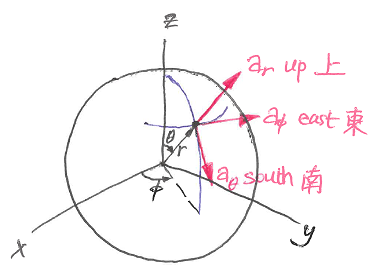 z
a_r up 上
a_φ east 東
θ
r
a_θ south 南
φ
x
y